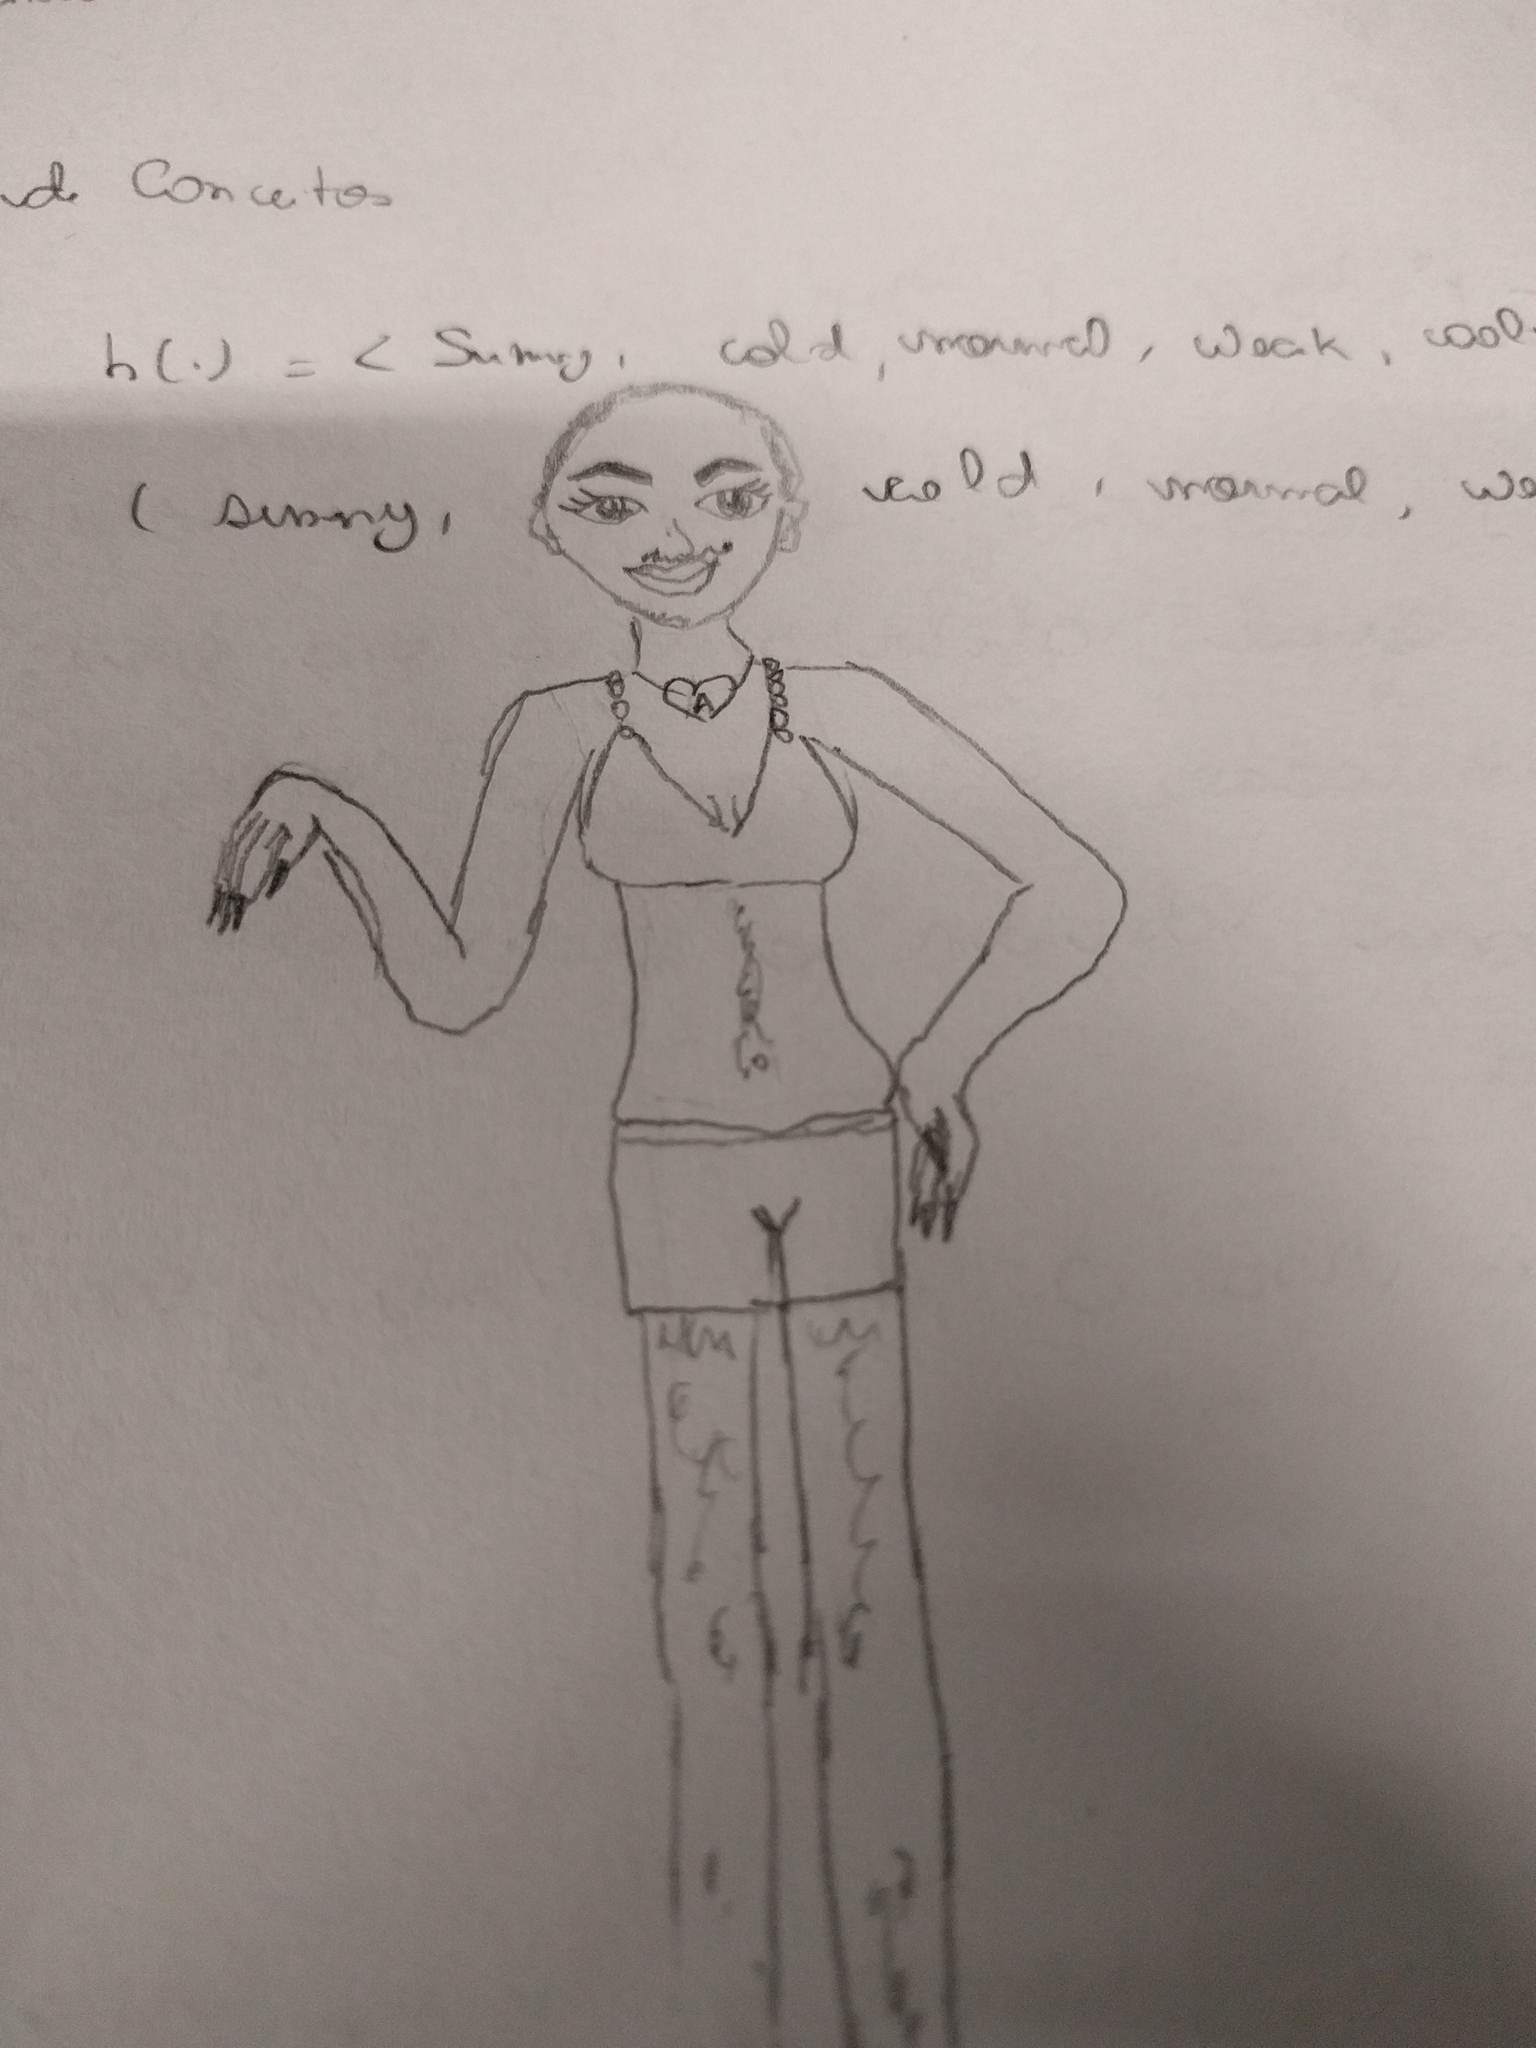 de Conceitos
h(.) = < Sunny, cold, normal, weak, cool
( sunny, cold, normal, we
A